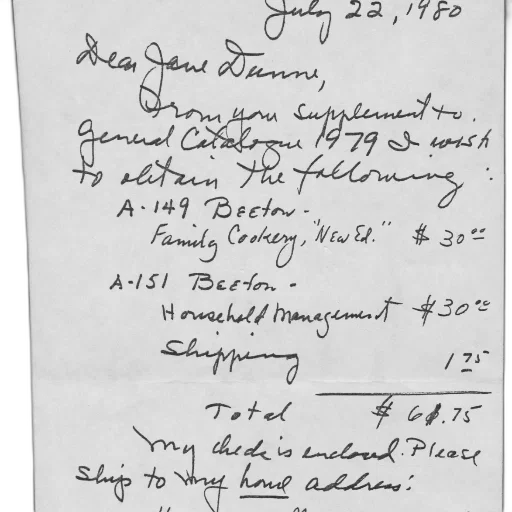 July 22, 1980
Dear Jane Dunne,
From your supplement to
General Catalogue 1979 I wish
to obtain the following:
A-149 Beeton -
Family Cookery, "New Ed." $30.00
A-151 Beeton -
Household Management $30.00
Shipping 1.75
Total $61.75
My check is enclosed. Please
ship to my home address: